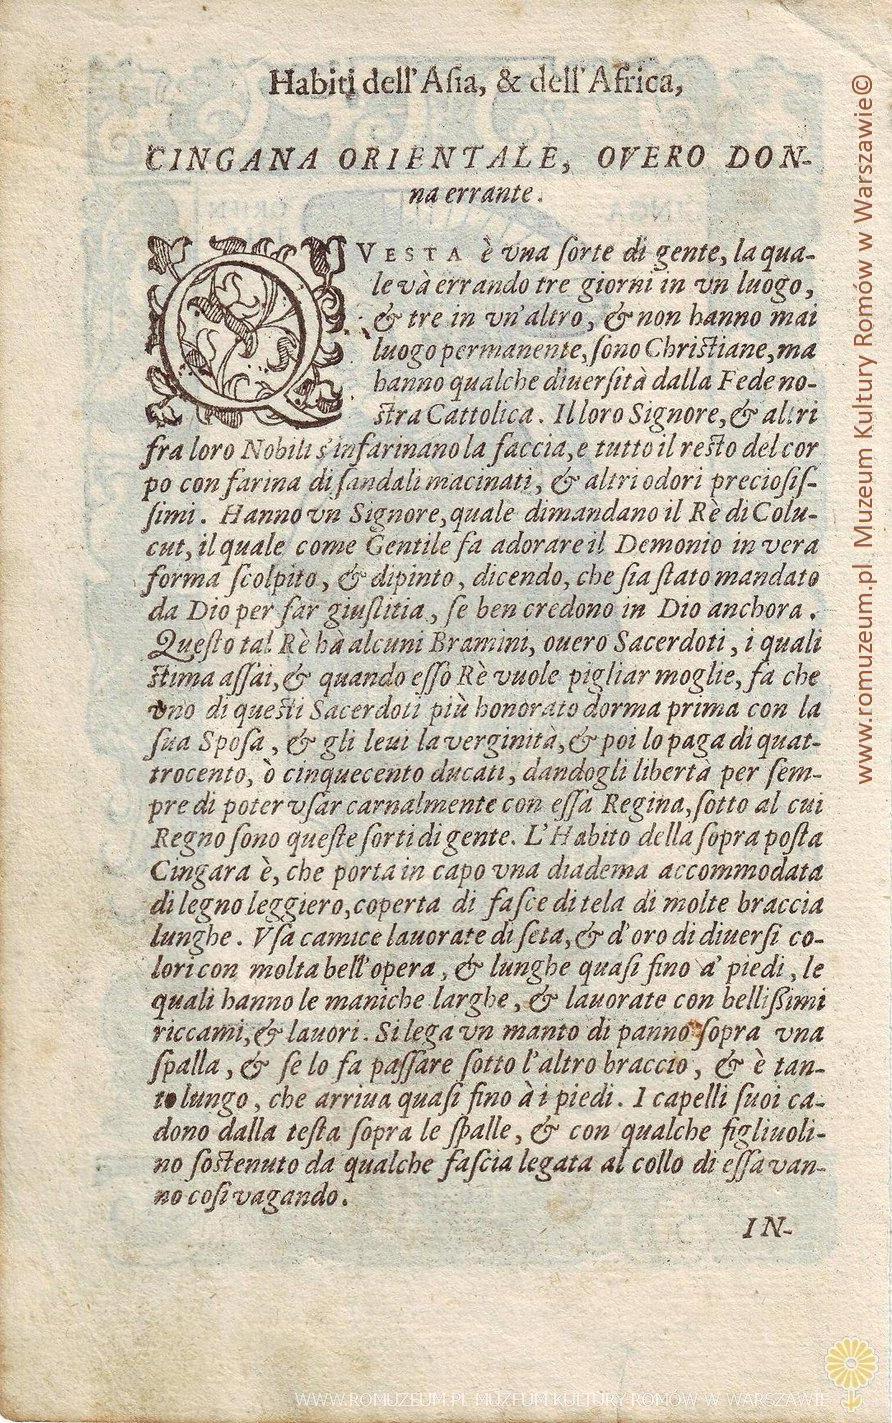 Habiti dell'Aſia, & dell'Africa,
CINGANA ORIENTALE, OVERO DON-
na errante.
QVESTA è vna ſorte di gente, la qua-
le và errando tre giorni in vn luogo,
& tre in vn'altro, & non hanno mai
luogo permanente, ſono Chriſtiane, ma
hanno qualche diuerſità dalla Fede no-
ſtra Cattolica. Il loro Signore, & altri
fra loro Nobili s'infarinano la faccia, e tutto il reſto del cor
po con farina di ſandali macinati, & altri odori precioſiſ-
ſimi. Hanno vn Signore, quale dimandano il Rè di Colu-
cut, il quale come Gentile fa adorare il Demonio in vera
forma ſcolpito, & dipinto, dicendo, che ſia ſtato mandato
da Dio per far giuſtitia, ſe ben credono in Dio anchora.
Queſto tal Rè hà alcuni Bramini, ouero Sacerdoti, i quali
ſtima aſſai, & quando eſſo Rè vuole pigliar moglie, fa che
vno di queſti Sacerdoti più honorato dorma prima con la
ſua Spoſa, & gli leui la verginità, & poi lo paga di quat-
trocento, ò cinquecento ducati, dandogli libertà per ſem-
pre di poter vſar carnalmente con eſſa Regina, ſotto al cui
Regno ſono queſte ſorti di gente. L'Habito della ſopra poſta
Cingara è, che porta in capo vna diadema accommodata
di legno leggiero, coperta di faſce di tela di molte braccia
lunghe. Vſa camice lauorate di ſeta, & d'oro di diuerſi co-
lori con molta bell'opera, & lunghe quaſi fino a' piedi, le
quali hanno le maniche larghe, & lauorate con belliſſimi
riccami, & lauori. Si lega vn manto di panno ſopra vna
ſpalla, & ſe lo fa paſſare ſotto l'altro braccio, & è tan-
to lungo, che arriua quaſi fino à i piedi. I capelli ſuoi ca-
dono dalla teſta ſopra le ſpalle, & con qualche figliuoli-
no ſoſtenuto da qualche faſcia legata al collo di eſſa van-
no coſi vagando.
IN-
www.romuzeum.pl Muzeum Kultury Romów w Warszawie©
WWW.ROMUZEUM.PL MUZEUM KULTURY ROMÓW W WARSZAWIE